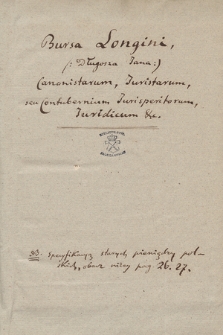 Bursa Longini,
(: Długosza Jana:)
Canonistarum, Juristarum,
seu Contubernium Jurisperitorum,
Juridicum &c.
NB. Specyfikacyą starych pieniędzy pol-
skich, obacz niżey pag. 26. 27.